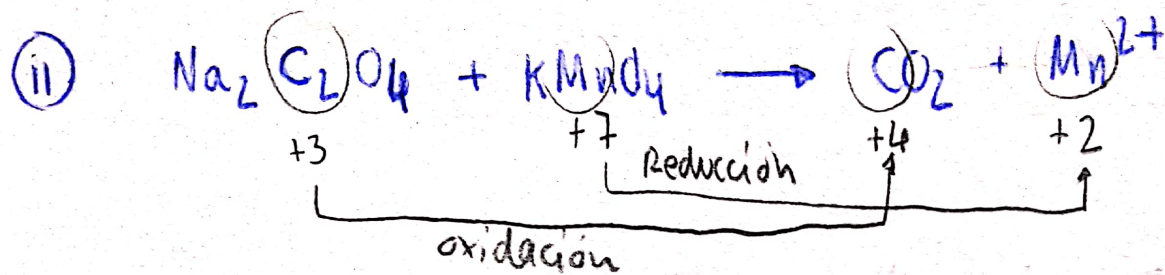 ii Na₂C₂O₄ + KMnO₄ → CO₂ + Mn²⁺
+3 +7 +4 +2
Reducción
oxidación